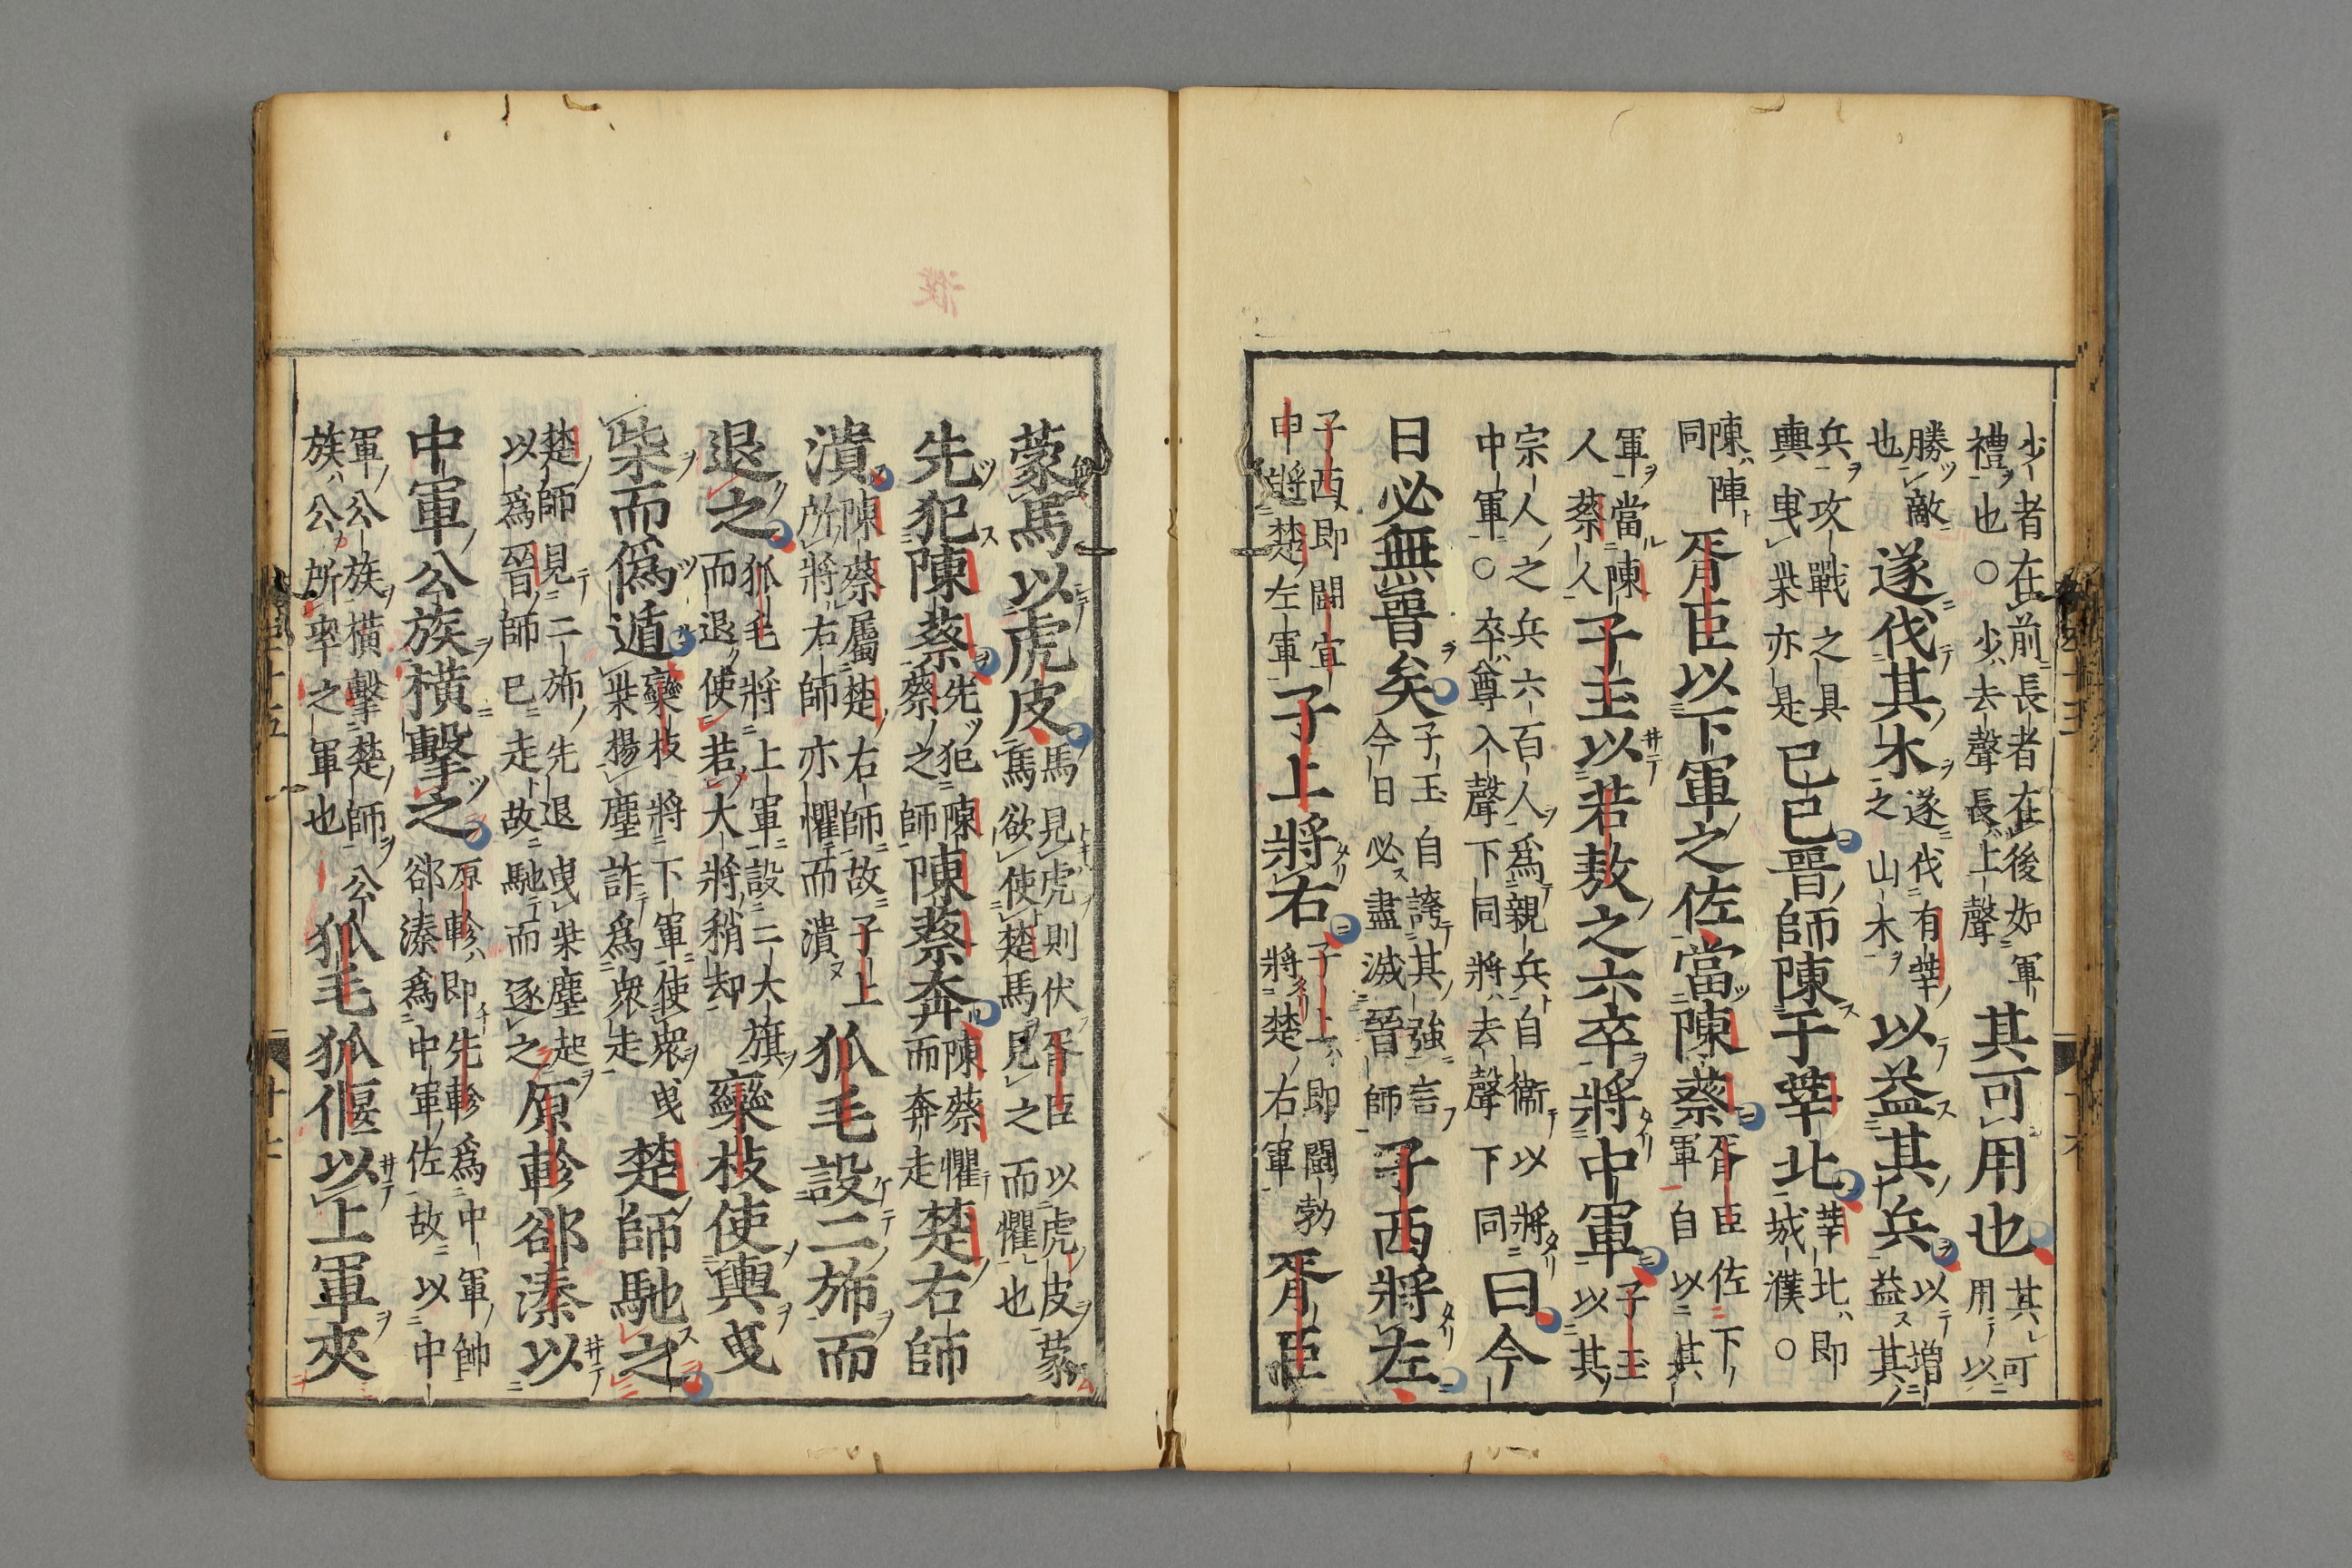 少者在前長者在後如軍禮也○少去聲長上聲其可用也其可用以
勝敵也遂伐其木遂伐有莘之山木以益其兵以増益其
兵攻戰之具輿曳柴亦是已巳晉師陳于莘北莘北即城濮○
陳陣同胥臣以下軍之佐當陳蔡胥臣佐下軍自以其
軍當陳人蔡人子玉以若敖之六卒將中軍子玉以其
宗人之兵六百人爲親兵自衞以將中軍○卒尊入聲下同將去聲下同曰今
日必無晉矣子玉自誇其強言今日必盡滅晉師子西將左
子西即鬭宜申將楚左軍子上將右子上即鬭勃將楚右軍胥臣
蒙馬以虎皮馬見虎則伏胥臣以虎皮蒙馬欲使楚馬見之而懼也
先犯陳蔡先犯陳蔡之師陳蔡奔陳蔡懼而奔走楚右師
潰陳蔡屬楚右師故子上所將右師亦懼而潰狐毛設二旆而
退之狐毛將上軍設二大旗而退使若大將稍却欒枝使輿曳
柴而僞遁欒枝將下軍使衆曳柴揚塵詐爲衆走楚師馳之
楚師見二旆先退曳柴塵起以爲晉師已走故馳而逐之原軫郤溱以
中軍公族橫擊之原軫即先軫爲中軍帥郤溱爲中軍佐故以中
軍公族橫擊楚師公族公所率之軍也狐毛狐偃以上軍夾